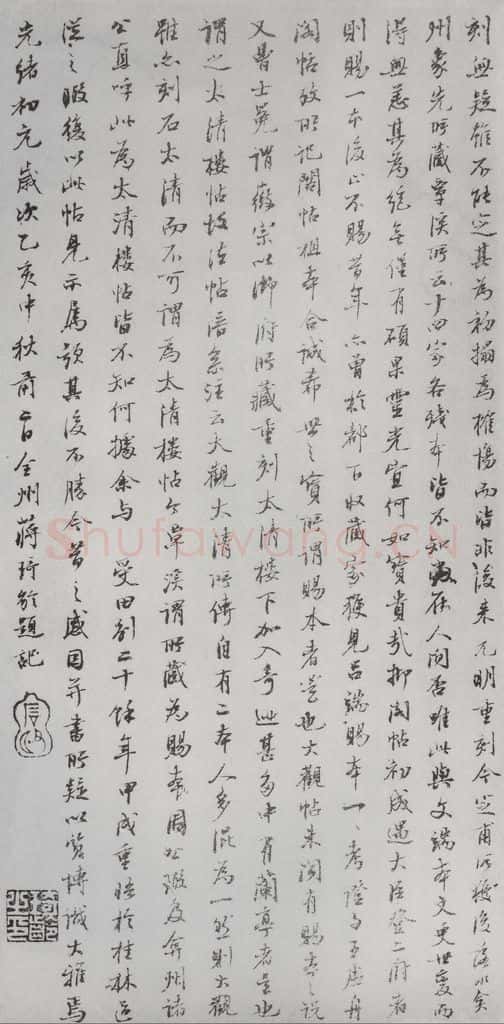 刻無疑雖不能定其為初搨為榷場而皆非後來元明重刻今
州象先所藏覃溪所云十四家各殘本皆不知尚在人間否唯此與文端本文更世變而
得無恙其為絕無僅有碩果靈光宜何如寶貴哉抑閣帖初成遇大臣登二府者
則賜一本後上不賜昔年亦曾於都下收藏家獲見
賜本一一考證
閣帖攷所記閣帖祖本合誠希世之寶所謂賜本者是也大觀帖未聞有賜本之說
又曹士冕謂徽宗以御府所藏重刻太清樓下加入奇跡甚多中有蘭亭者是也
謂之太清樓帖故法帖譜系注云大觀太清所傳自有二本人多混為一然則大觀
雖亦刻石太清而不可謂為太清樓帖今覃溪謂所藏為賜本及弇州諸
公直呼此為太清樓帖皆不知何據余與受田別二十餘年甲戌重晤於桂林
從之暇復以此帖見示屬題其後不勝今昔之感因并書所疑以質博識大雅焉
光緒初元歲次乙亥中秋前 日全州蔣琦齡題記
Shufawang.CN